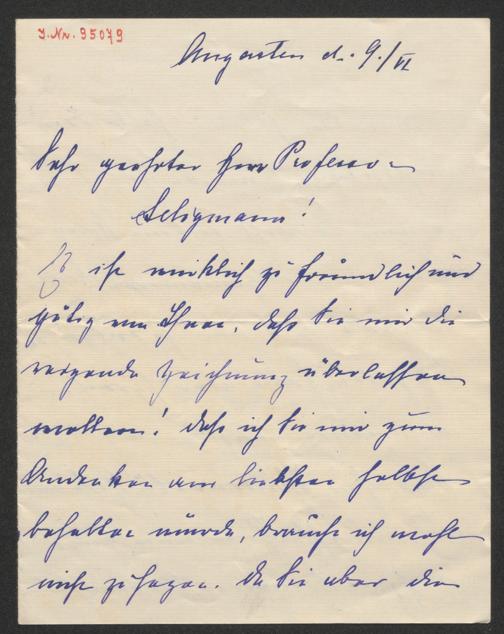 J. Nr. 95079
Augarten d. 9./VI
Sehr geehrter Herr Professor
Seligmann!
Es ist wirklich zu freundlich und
gütig von Ihnen, daß Sie mir die
reizende Zeichnung überlassen
wollen! Daß ich Sie mir zum
Andenken am liebsten selbst
behalten würde, brauche ich wohl
nicht zu sagen. Da Sie aber die